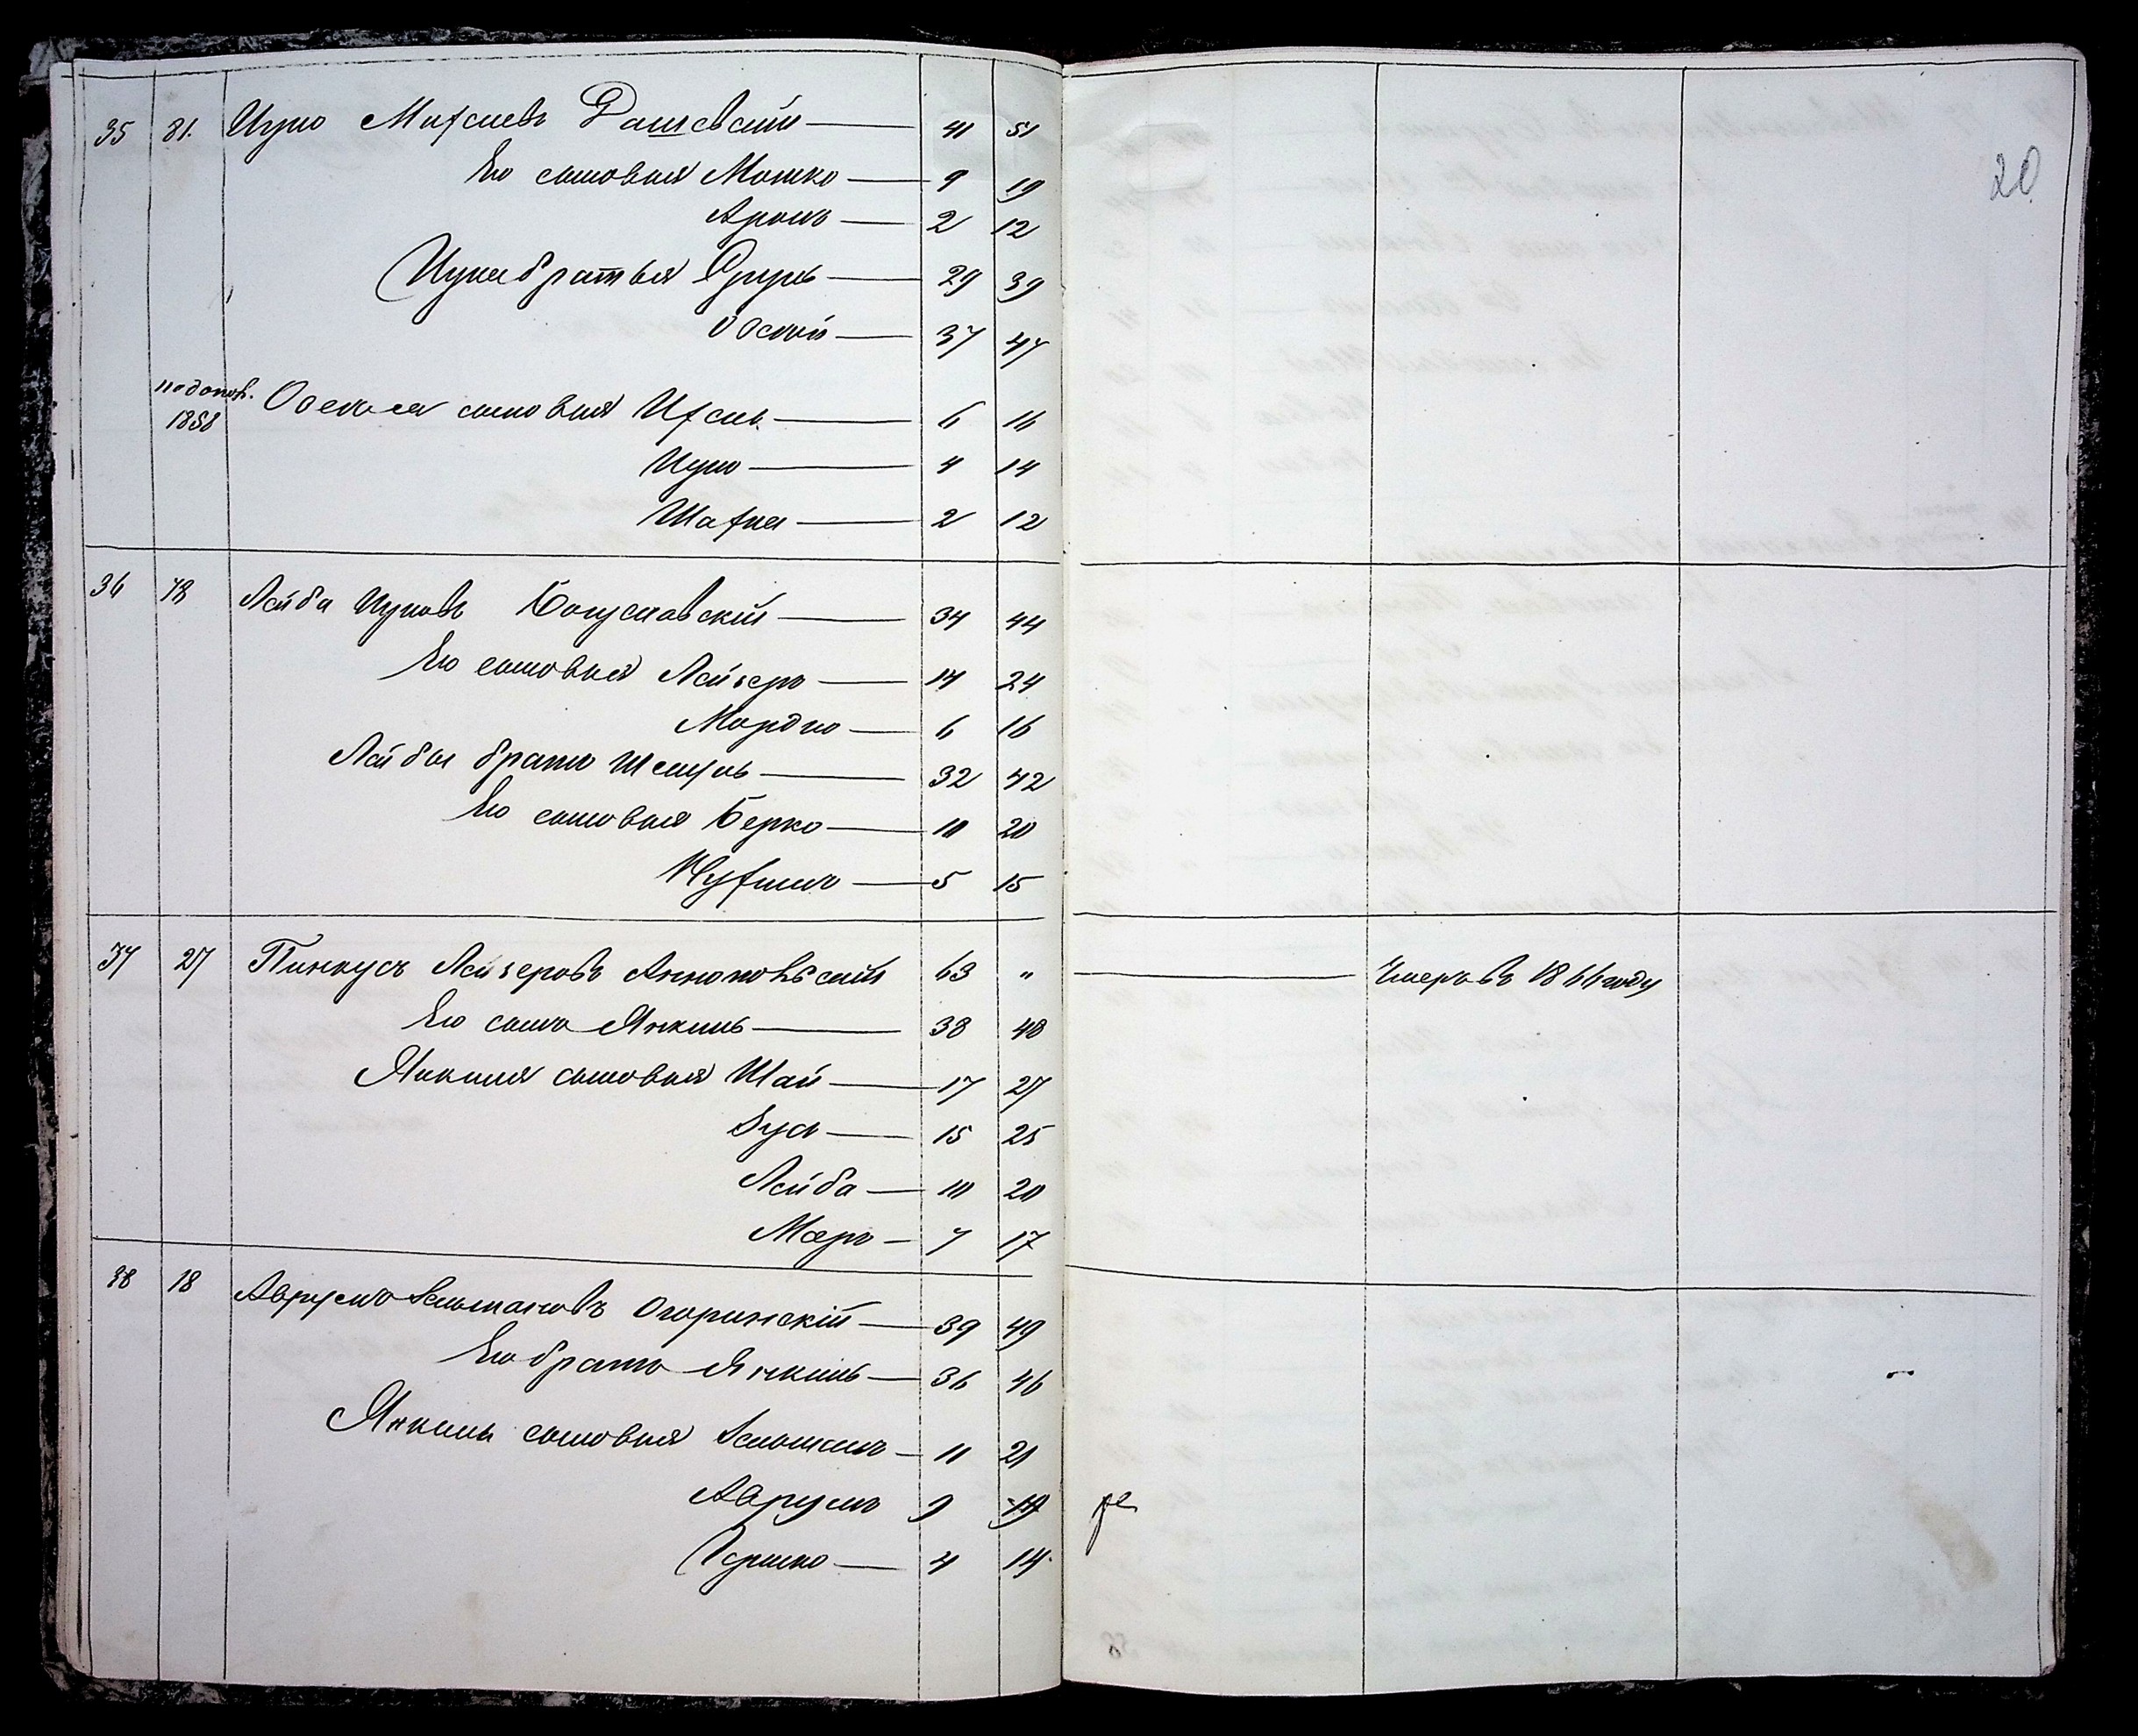 20
35 81. Ицко Михелевъ Рашевскій — 41 51
Его сыновья Мошко — 9 19
Аронъ — 2 12
Ицка братья Сруль — 29 39
Іосій — 37 47
по допол. 1858
сыновья Ихель — 6 16
Ицко — 4 14
Шахна — 2 12
36 78 Лейба Ицковъ Богуславскій — 34 44
Его сыновья Лейзеръ — 14 24
Мордко — 6 16
Лейбы братъ Шмуль — 32 42
Его сыновья Берко — 10 20
Нухимъ — 5 15
37 27 Пинкусъ Лейзеровъ 63 " — Умеръ въ 1866 году
Его сынъ Янкель — 38 48
Янкеля сыновья Шай — 17 27
Зусь — 15 25
Лейба — 10 20
Мееръ — 7 17
38 18 Аврумъ Зельмановъ Огоринскій — 39 49
Его братъ Янкель — 36 46
Янкеля сыновья Зельманъ — 11 21
Аврумъ 9 19
Гершко — 4 14